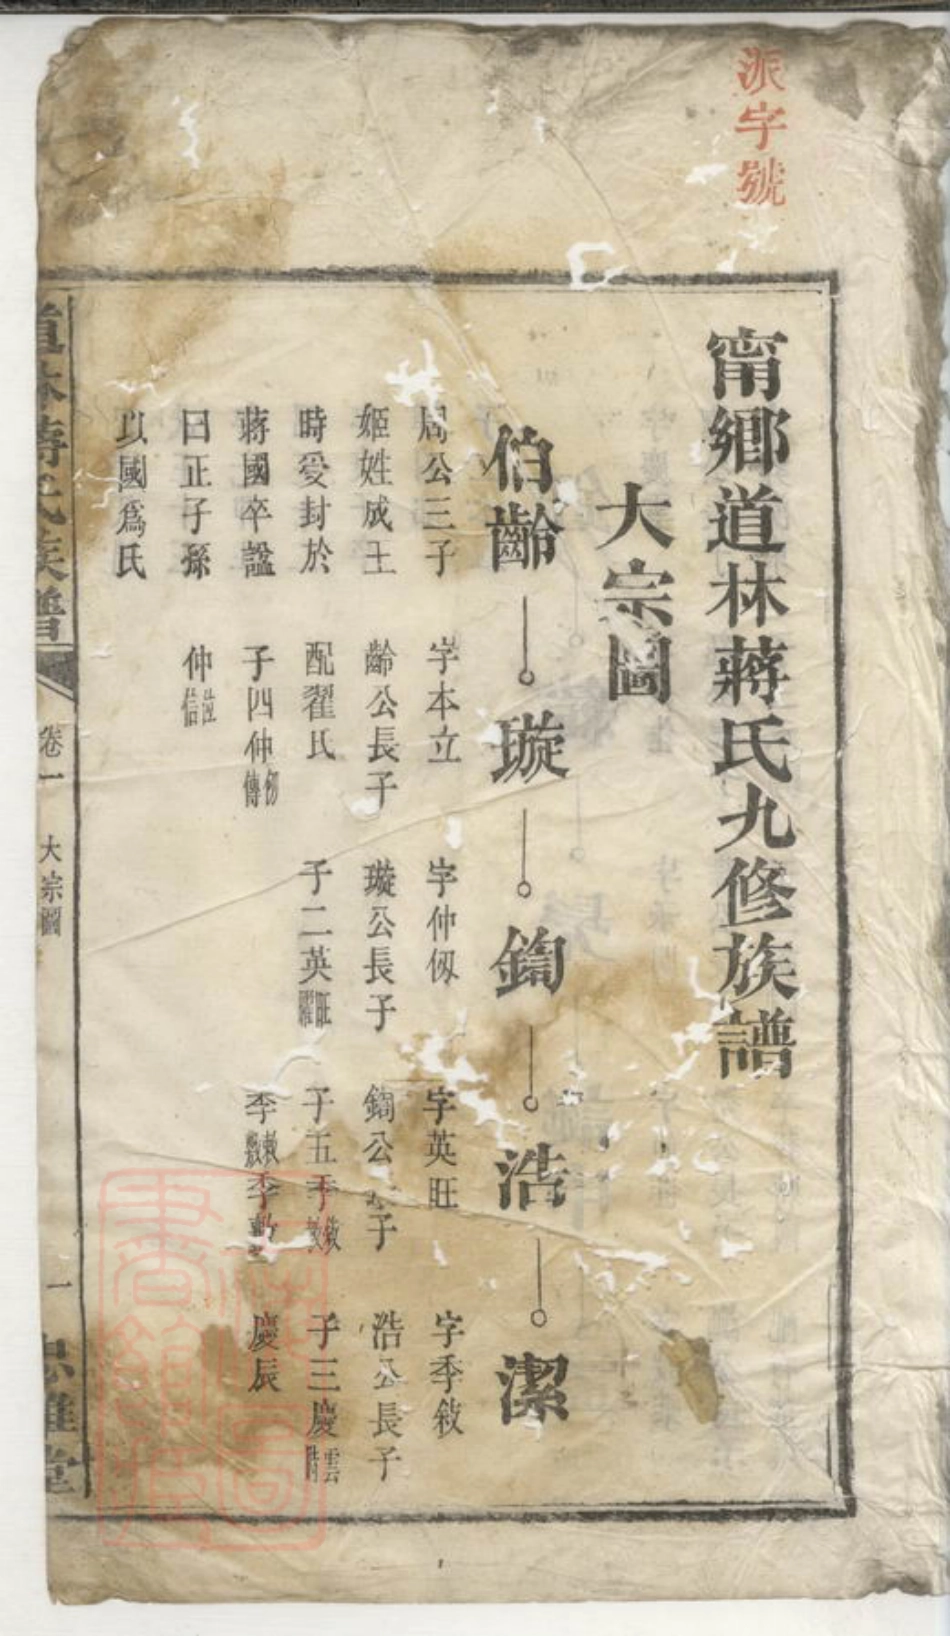 派字號
甯鄉道林蔣氏九修族譜
大宗圖
伯齡
周公三子
姬姓成王
時受封於
蔣國卒諡
曰正子孫
以國爲氏
璇
字本立
齡公長子
配翟氏
子四仲仞傳
仲信
鐫
字仲仞
璇公長子
子二英旺耀
浩
字英旺
公子
子五季敘
季季
潔
字季敘
浩公長子
子三慶雲
慶辰
道林蔣氏族譜
卷一
大宗圖
一
忠雅堂